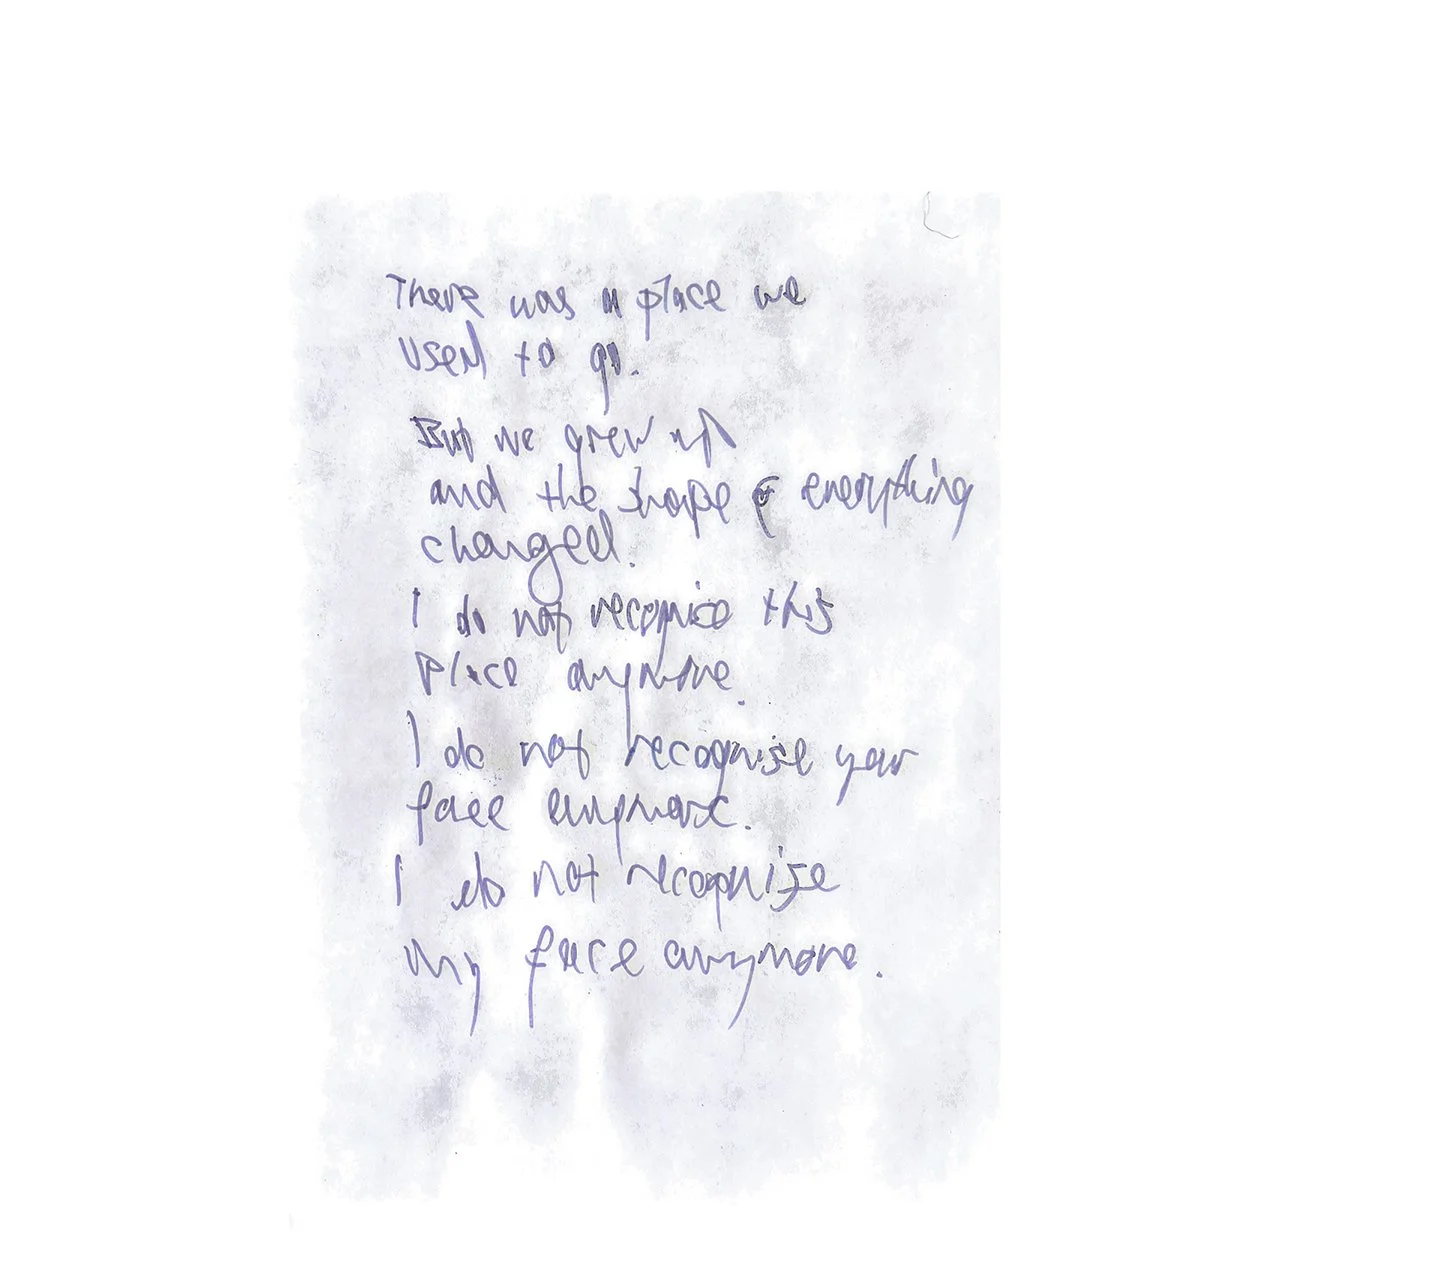 There was a place we
used to go.
But we grew up
and the shape of everything
changed.
I do not recognise this
place anymore.
I do not recognise your
face anymore.
I do not recognise
my face anymore.